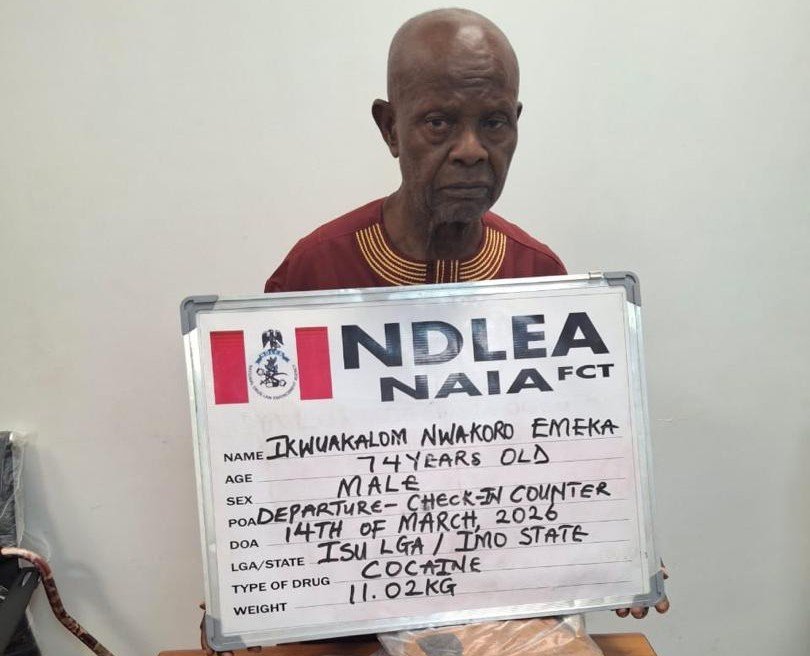 NDLEA
NAIA FCT
NAME IKWUAKALOM NWAKORO EMEKA
AGE 74 YEARS OLD
SEX MALE
POA DEPARTURE - CHECK-IN COUNTER
DOA 14TH OF MARCH, 2026
LGA/STATE ISU LGA / IMO STATE
TYPE OF DRUG COCAINE
WEIGHT 11.02KG